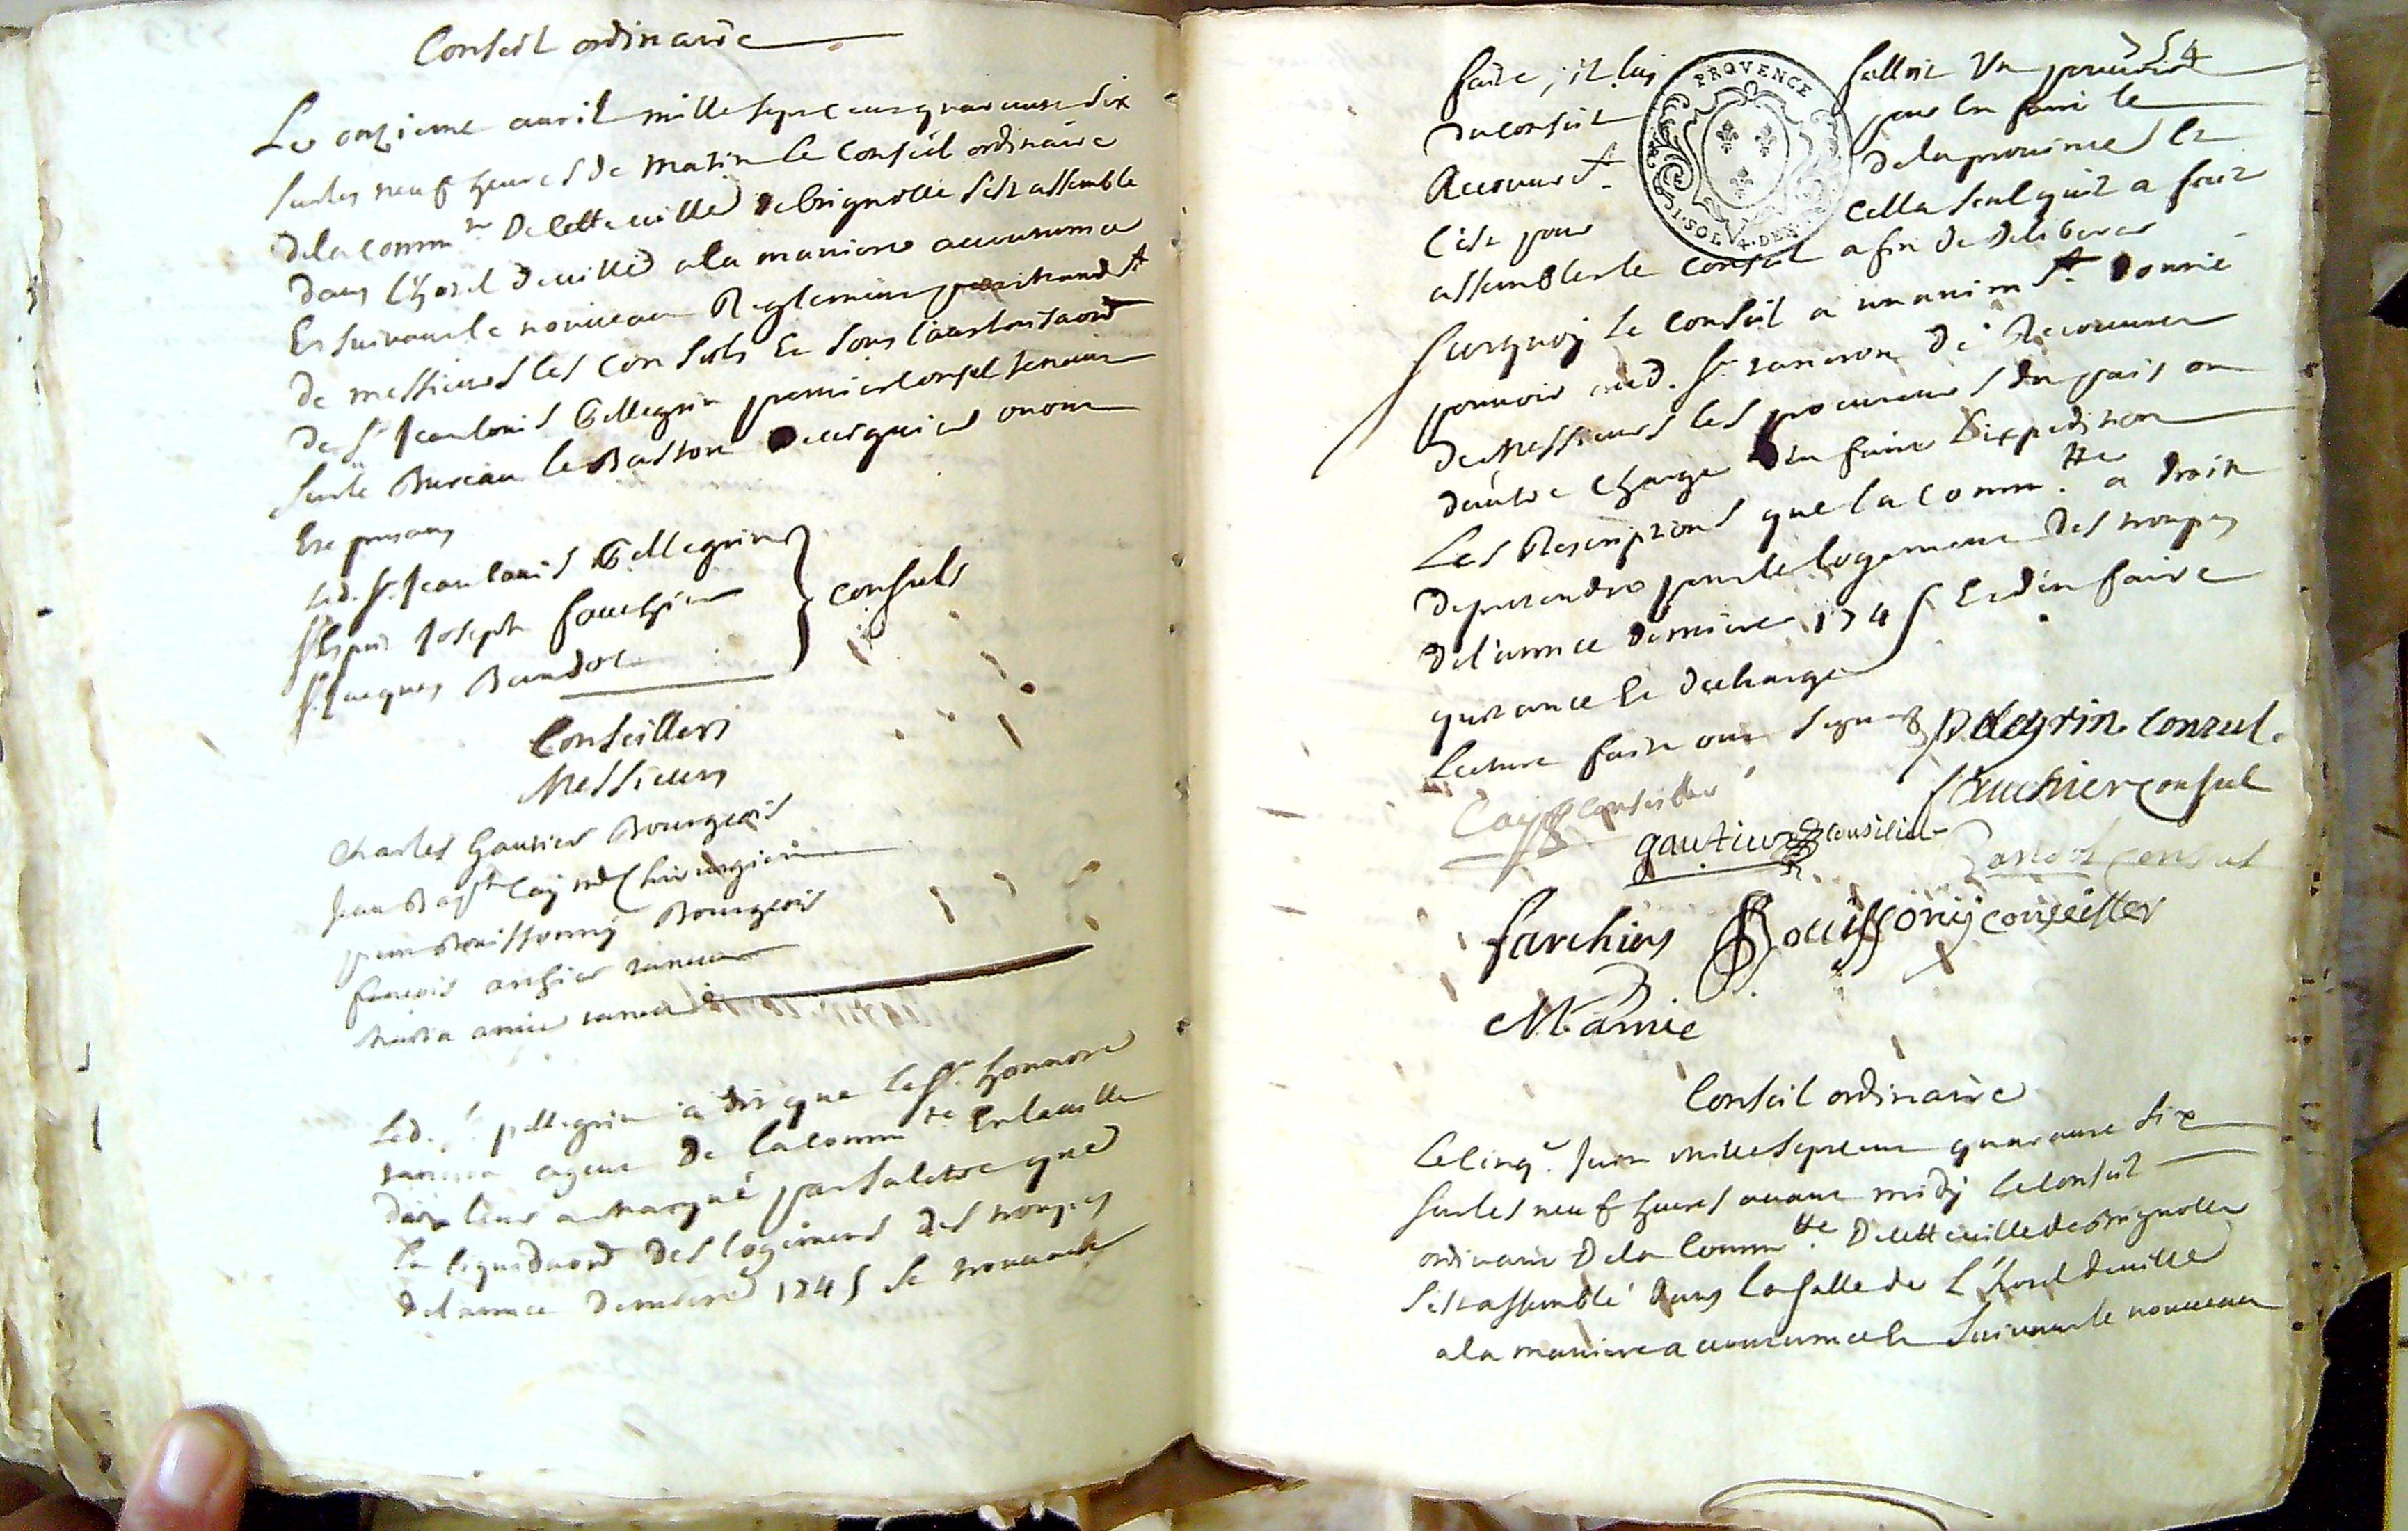 Conseil ordinaire
Le onzieme auril mille sept cens quarante six
sur les neuf heures de matin le conseil ordinaire
de la comm.te de cette ville de brignolle s'est assemble
dans l'hotel de ville a la maniere accoutumée
Et suivant le nouveau Reglement
de messieurs les consuls Et sous l'authorisaon
de Sr Jean louis Pellegrin premier consul tenant
sur le Bureau le Baston viguier ont
Este presens
Led. Sr. Jean louis Pellegrin
Sr Esprit Joseph fauchier
Sr Jacques Baudoc
consuls
Conseillers
Messieurs
Charles Gautier Bourgeois
Jean Bapte Caÿ md Chirurgien
pierre Bouissonny Bourgeois
francois archier
amic
Led. Sr pellegrin a dit que le Sr. honnoré
agent de la comm.te En la ville
d'aix leur a marqué par sa letre que
la liquidaon des logemens des troupes
de l'annee derniere 1745 se trouvant
754
faite, il luy falloit Un pouvoir
du conseil pour En faire le
Recouvremt. de la province Et
C'est pour cella seul quil a fait
assembler le conseil afin de deliberer
PROVENCE
1·SOL 4·DEN·
Surquoy le conseil a unanimt. donné
pouvoir aud. Sr. de Recouvrer
de Messieurs les procureurs du païs ou
d'autre charge d'En faire L'expedition
Les Rescriptions que la comm.tte a droit
de prendre pour le logement des troupes
de l'annee derniere 1745 Et d'en faire
quitance Et decharge
Lecture faite ont signes pelegrin consul.
Caÿ conseiller fauchier consul
gautier consilier consul
farchier Bouissony conseiller
M amic
Conseil ordinaire
Le cinq.e Juin mille sept cens quarante six
sur les neuf heures avant midy le conseil
ordinaire de la Comm.tte de cette ville de Brignolle
s'est assemblé dans la salle de L'hotel de ville
a la maniere accoutumee Et suivant le nouveau